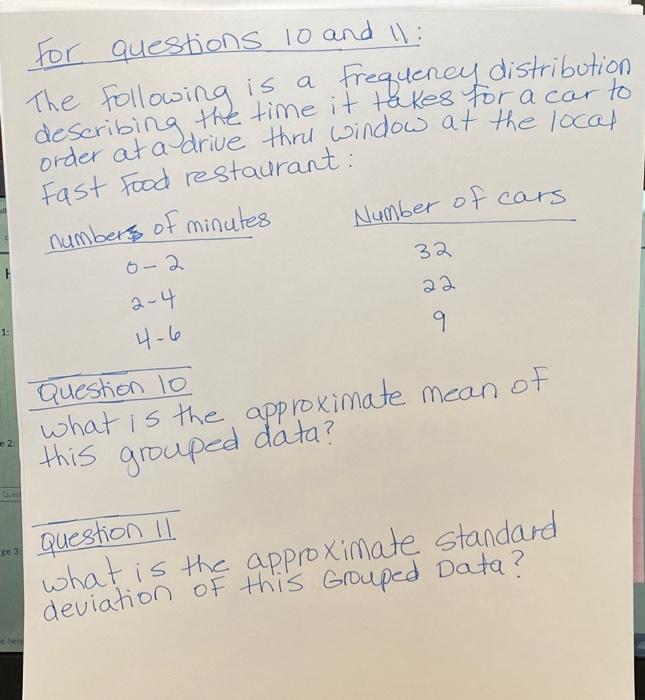 For questions 10 and 11:
The Following is a frequency distribution
describing the time it takes for a car to
order at a drive thru window at the local
Fast Food restaurant:
numbers of minutes Number of cars
0-2 32
2-4 22
4-6 9
Question 10
what is the approximate mean of
this grouped data?
Question 11
what is the approximate standard
deviation of this Grouped Data?
1:
e 2:
Quest
ge 3:
e here